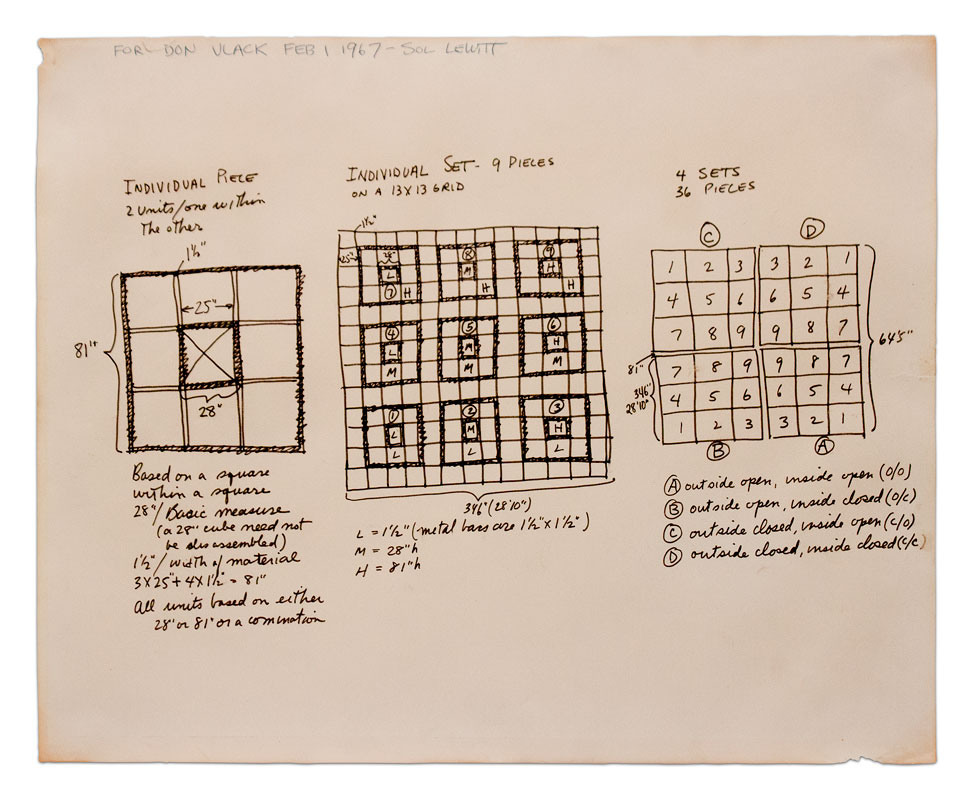 FOR DON VLACK FEB 1 1967 - SOL LEWITT
INDIVIDUAL PIECE
2 units/one within
the other
1½"
25"
81"
28"
Based on a square
within a square
28"/Basic measure
(a 28" cube need not
be disassembled)
1½"/width of material
3x25"+4x1½"=81"
All units based on either
28" or 81" or a comination
INDIVIDUAL SET - 9 PIECES
ON A 13X13 GRID
1½"
25"
28"
L
7
H
8
M
H
9
H
H
4
L
M
5
M
M
6
H
M
1
L
L
2
M
L
3
H
L
346" (28'10")
L = 1½" (metal bars are 1½"x1½")
M = 28"h
H = 81"h
4 SETS
36 PIECES
C D
1 2 3 3 2 1
4 5 6 6 5 4
7 8 9 9 8 7
7 8 9 9 8 7
4 5 6 6 5 4
1 2 3 3 2 1
B A
81"
346"
28'10"
64'5"
A outside open, inside open (O/O)
B outside open, inside closed (O/C)
C outside closed, inside open (C/O)
D outside closed, inside closed (C/C)